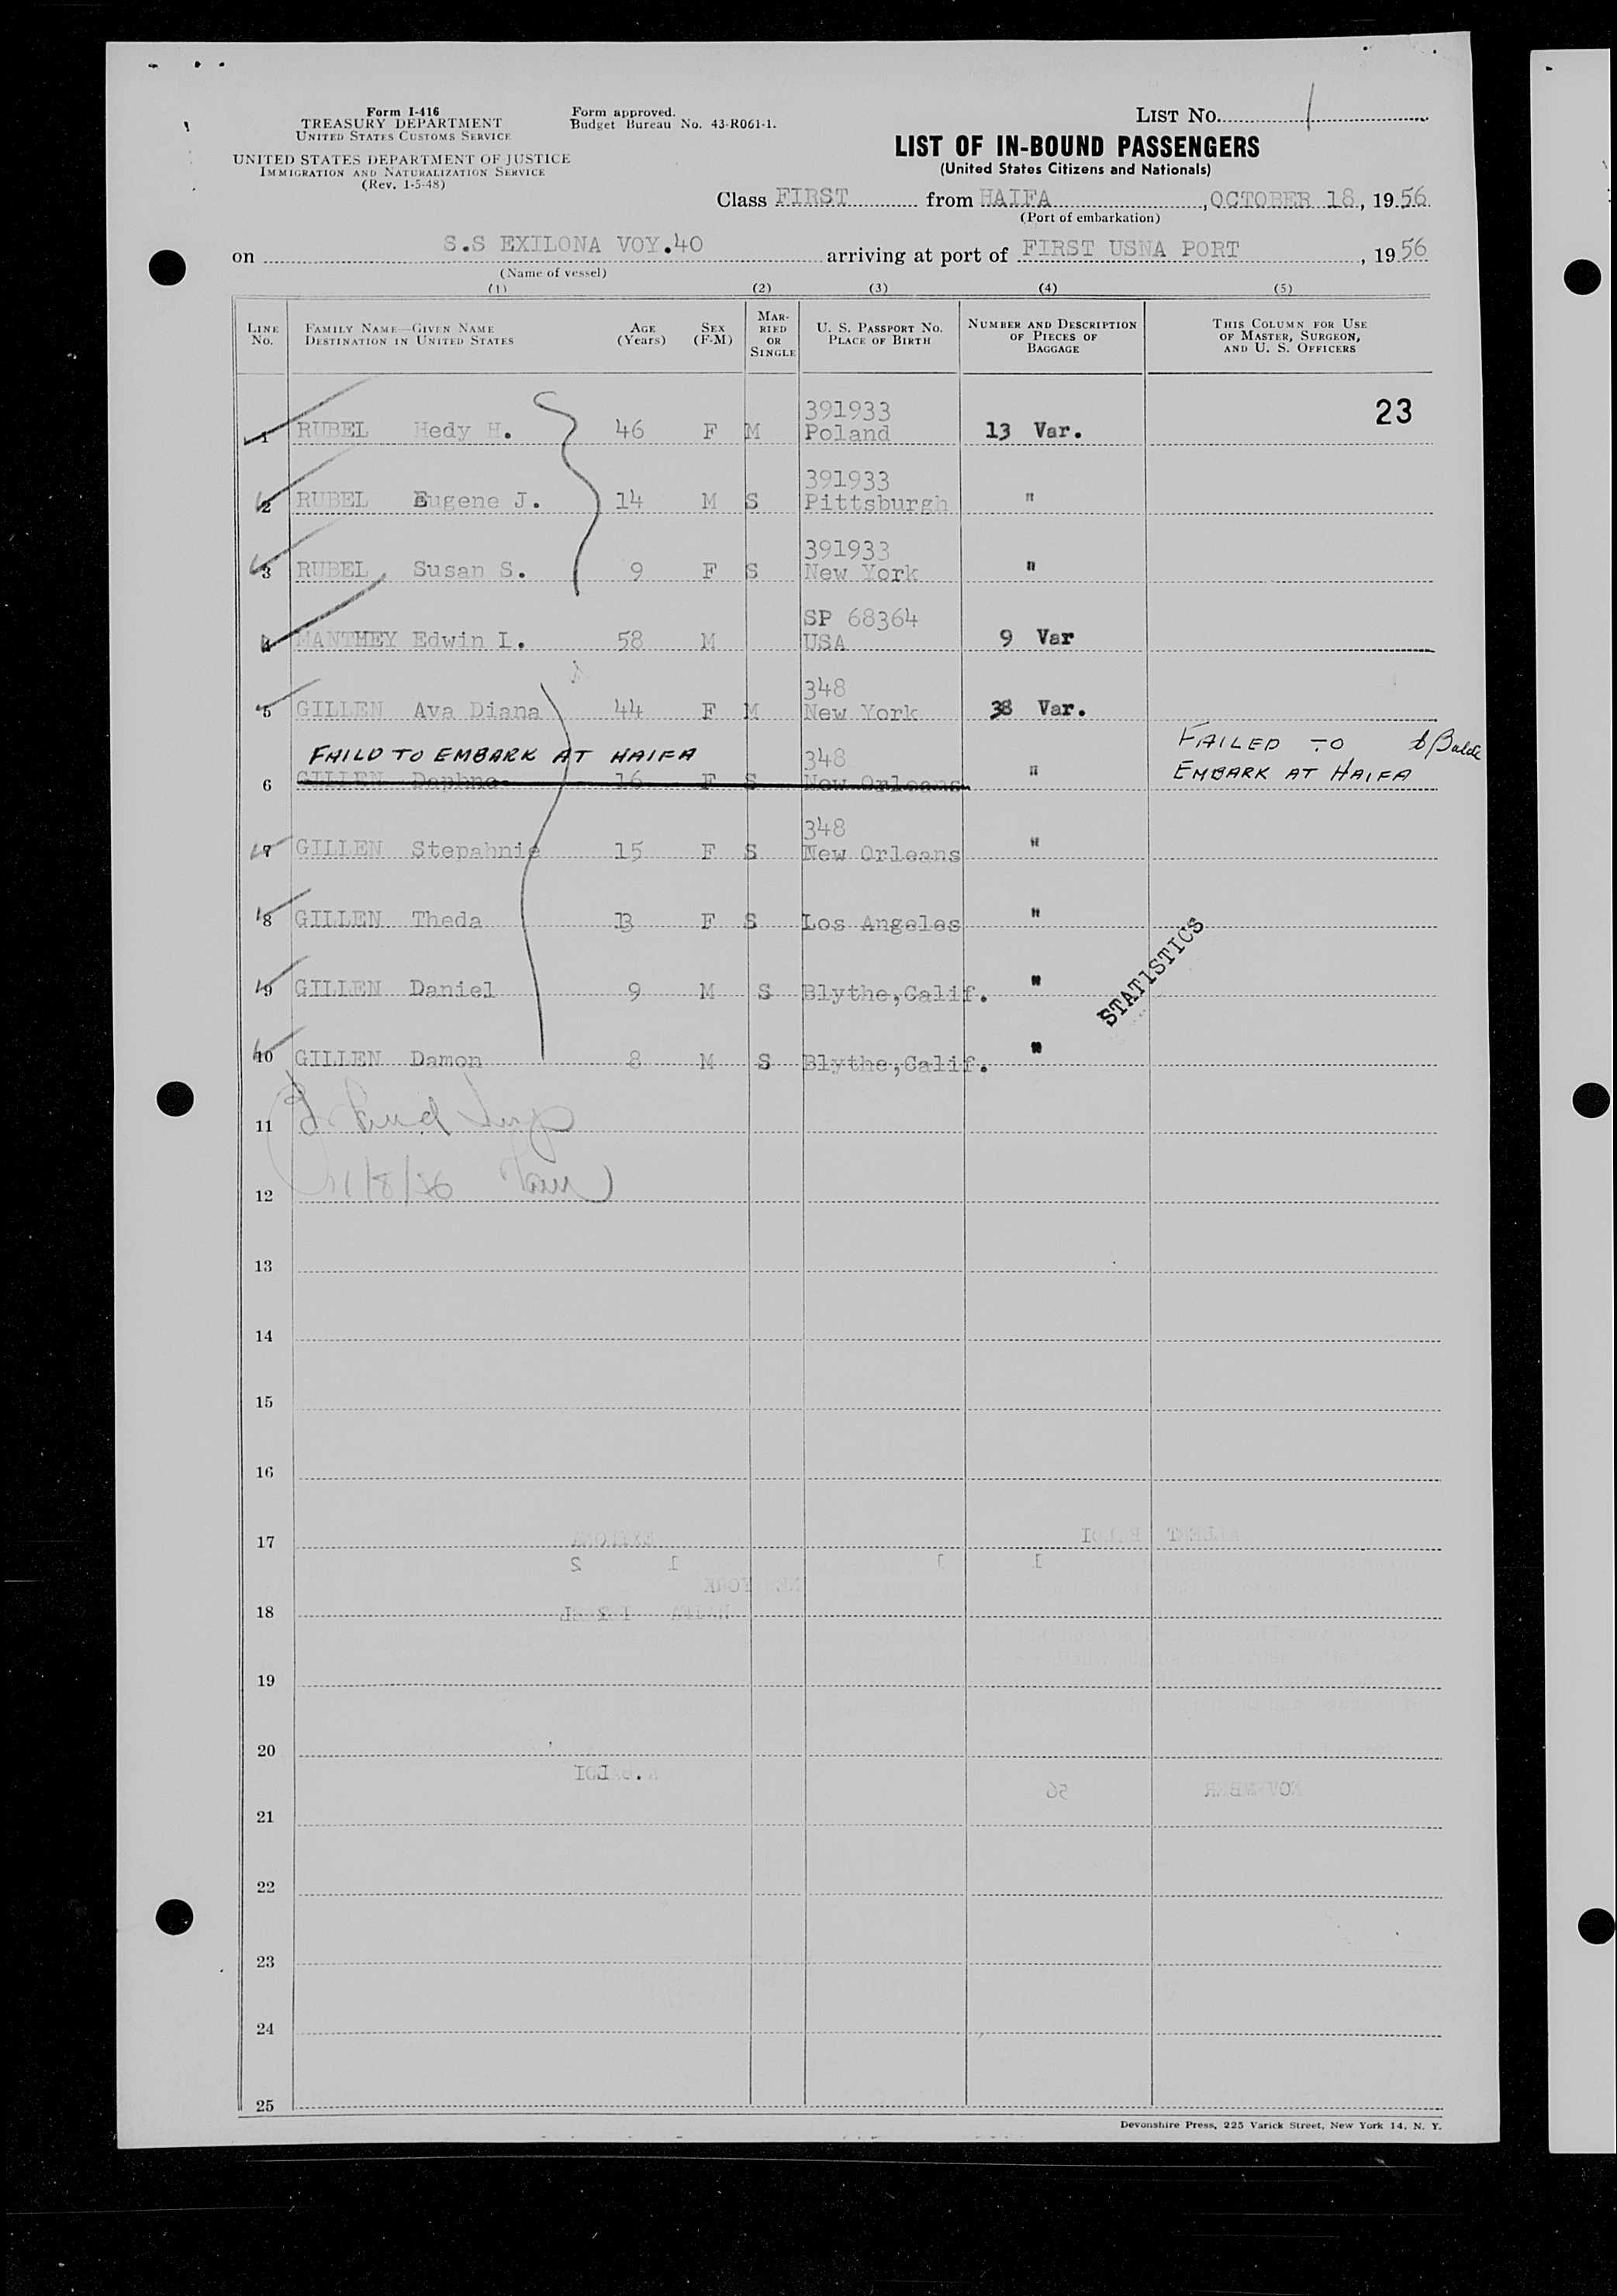 Form I-416
TREASURY DEPARTMENT
UNITED STATES CUSTOMS SERVICE
UNITED STATES DEPARTMENT OF JUSTICE
IMMIGRATION AND NATURALIZATION SERVICE
(Rev. 1-5-48)
Form approved.
Budget Bureau No. 43-R061-1.
LIST No. 1
LIST OF IN-BOUND PASSENGERS
(United States Citizens and Nationals)
Class FIRST from HAIFA , OCTOBER 18, 1956
(Port of embarkation)
on S.S EXILONA VOY.40 arriving at port of FIRST USNA PORT , 1956
(Name of vessel)
(1) (2) (3) (4) (5)
LINE No. FAMILY NAME—GIVEN NAME DESTINATION IN UNITED STATES AGE (Years) SEX (F-M) MARRIED OR SINGLE U. S. PASSPORT NO. PLACE OF BIRTH NUMBER AND DESCRIPTION OF PIECES OF BAGGAGE THIS COLUMN FOR USE OF MASTER, SURGEON, AND U. S. OFFICERS
23
391933
1 RUBEL Hedy H. 46 F M Poland 13 Var.
391933
2 RUBEL Eugene J. 14 M S Pittsburgh "
391933
3 RUBEL Susan S. 9 F S New York "
SP 68364
4 MANTHEY Edwin I. 58 M USA 9 Var
348
5 GILLEN Ava Diana 44 F M New York 38 Var.
FAILD TO EMBARK AT HAIFA 348 FAILED TO
6 GILLEN Daphne 16 F S New Orleans " EMBARK AT HAIFA
348
7 GILLEN Stepahnie 15 F S New Orleans "
8 GILLEN Theda 13 F S Los Angeles "
9 GILLEN Daniel 9 M S Blythe,Calif. "
STATISTICS
10 GILLEN Damon 8 M S Blythe,Calif. "
11
12 11/8/56
13
14
15
16
17
18
19
20
21
22
23
24
25
Devonshire Press, 225 Varick Street, New York 14, N. Y.